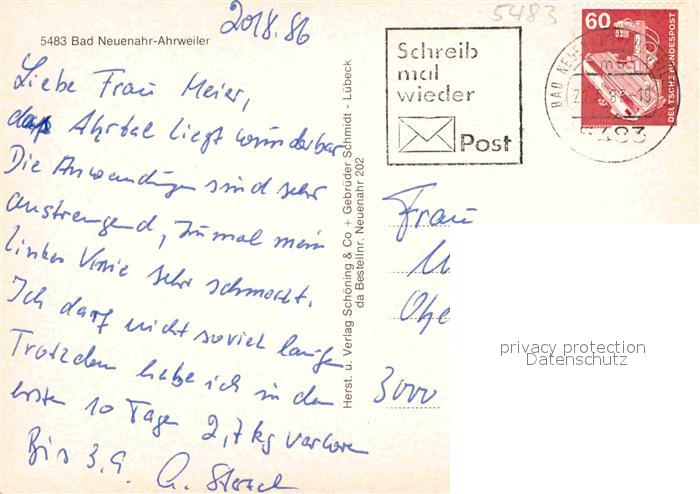 20.8.86
5483
5483 Bad Neuenahr-Ahrweiler
Liebe Frau Meier,
das Ahrtal liegt wunderbar
Die Anwendungen sind sehr
anstrengend, zumal mein
linkes Knie sehr schmerzt.
Ich darf nicht soviel laufen
Trotzdem habe ich in den
ersten 10 Tagen 2,7 kg verloren
Bis 3.9.
Herst. u. Verlag Schöning & Co + Gebrüder Schmidt - Lübeck
da Bestellnr. Neuenahr 202
Schreib
mal
wieder
Post
60
DEUTSCHE BUNDESPOST
BAD NEUENAHR
5483
Frau
3000
privacy protection
Datenschutz